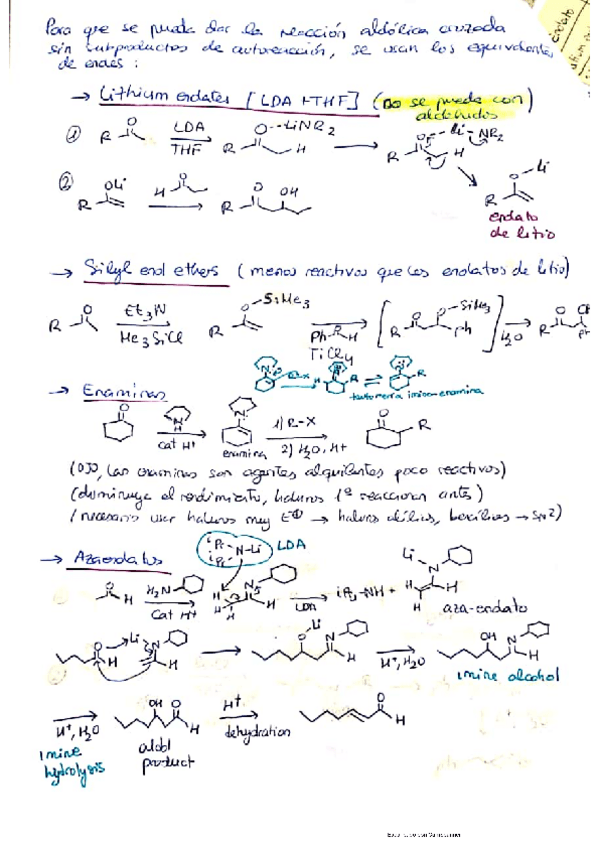 Para que se pueda dar la reacción aldólica cruzada
sin subproductos de autoreacción, se usan los equivalentes
de enoles :
→ Lithium enolates [LDA + THF] (no se puede con
aldehidos)
① R O LDA THF R O--LiNR2 H → R O Li NR2 H
② R OLi H O → R O OH
R O Li
enolato
de litio
→ Silyl enol ethers (menos reactivos que los enolatos de litio)
R O Et3N Me3SiCl R O SiMe3 Ph H TiCl4 [R O O SiMe3 Ph] H2O R O
tautomería imina-enamina
→ Enaminas
O N H cat H+ N enamina 1) R-X 2) H2O, H+ O R
(OJO, las enaminas son agentes alquilantes poco reactivos)
(disminuye el rendimiento, haluros 1º reaccionan antes)
(necesario usar haluros muy E⊕ → haluros alílicos, bencílicos → SN2)
→ Azaenolatos
iPr iPr N-Li LDA
O H H2N Cat H+ H N H LDA iPr2NH + Li N H H H
aza-enolato
O H Li N H → O Li N H H+, H2O OH N H
imine alcohol
H+, H2O OH O H H+ dehydration O H
imine
hydrolysis
aldol
product